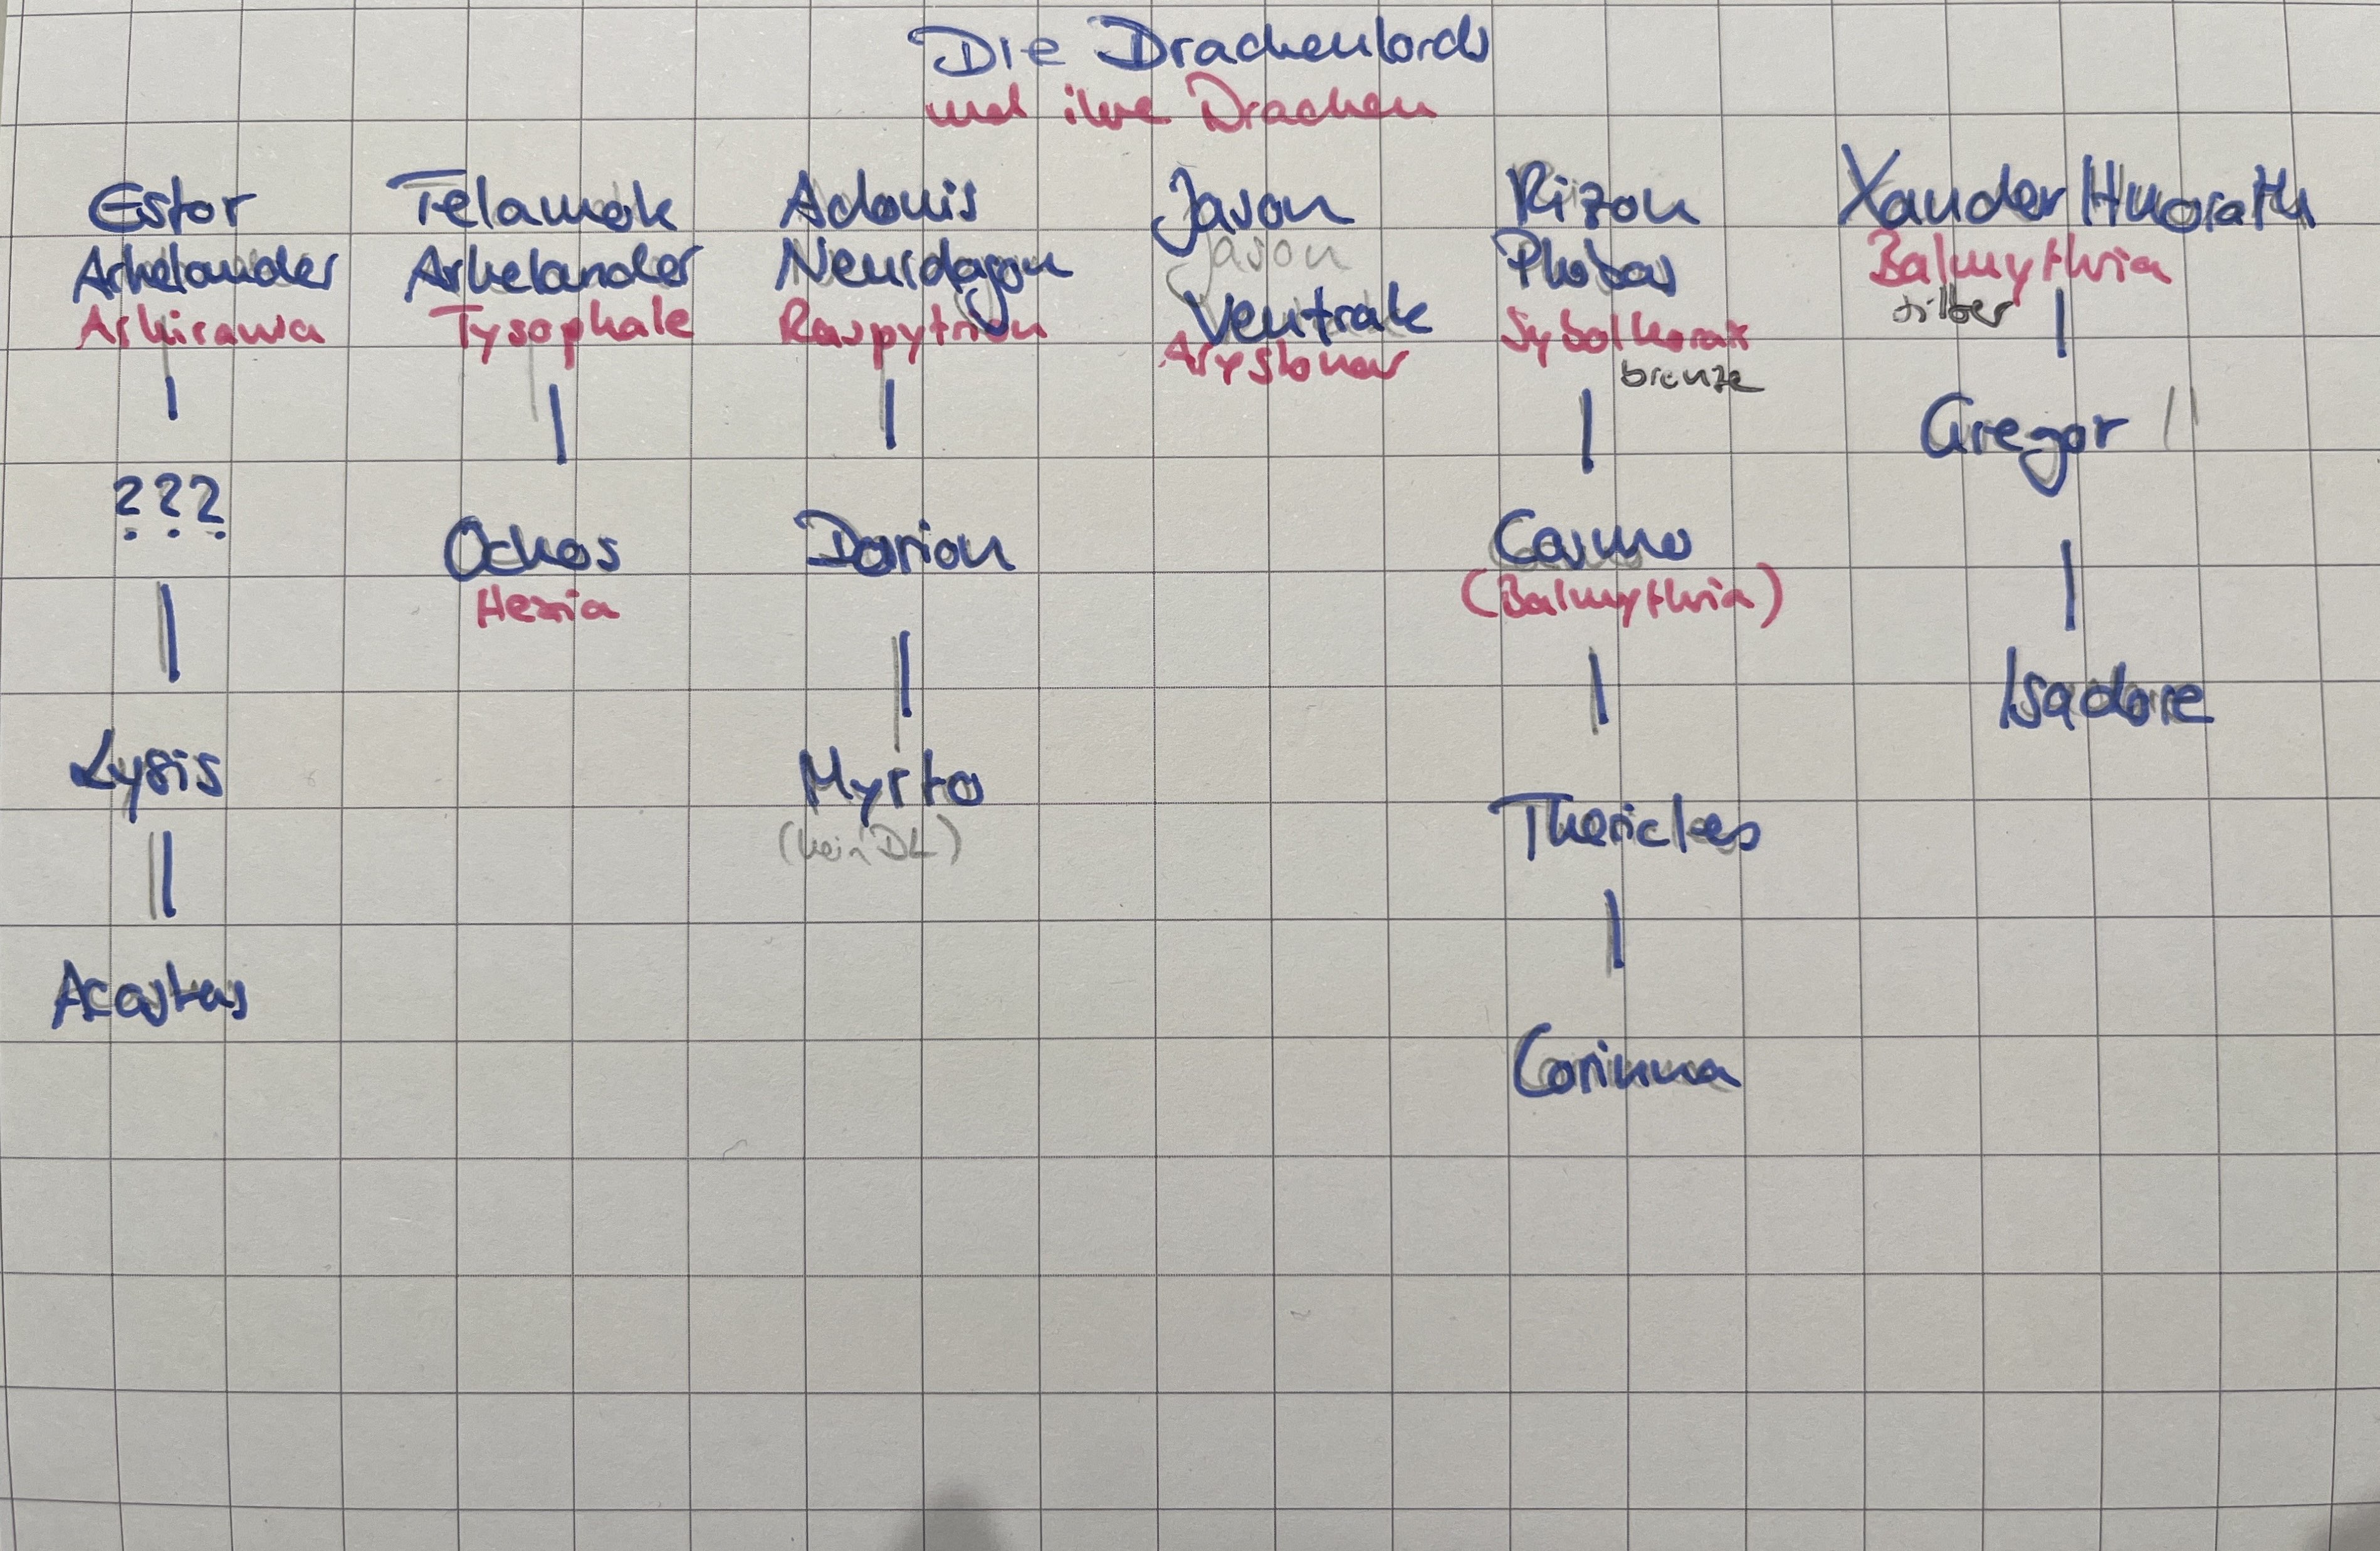 Die Drachenlords
und ihre Drachen
Estor
Arkelander
Arkirawa
???
Lysis
Acastus
Telamok
Arkelander
Tysophale
Ochos
Hexia
Adonis
Neuridagon
Raspytrion
Darion
Myrto
(kein DL)
Jason
Jason
Ventrak
Rizon
Phobas
Sybolkorax
bronze
(Balmythria)
Thericles
Corinna
Xander Huorath
Balmythria
silber
Gregor
Isadore